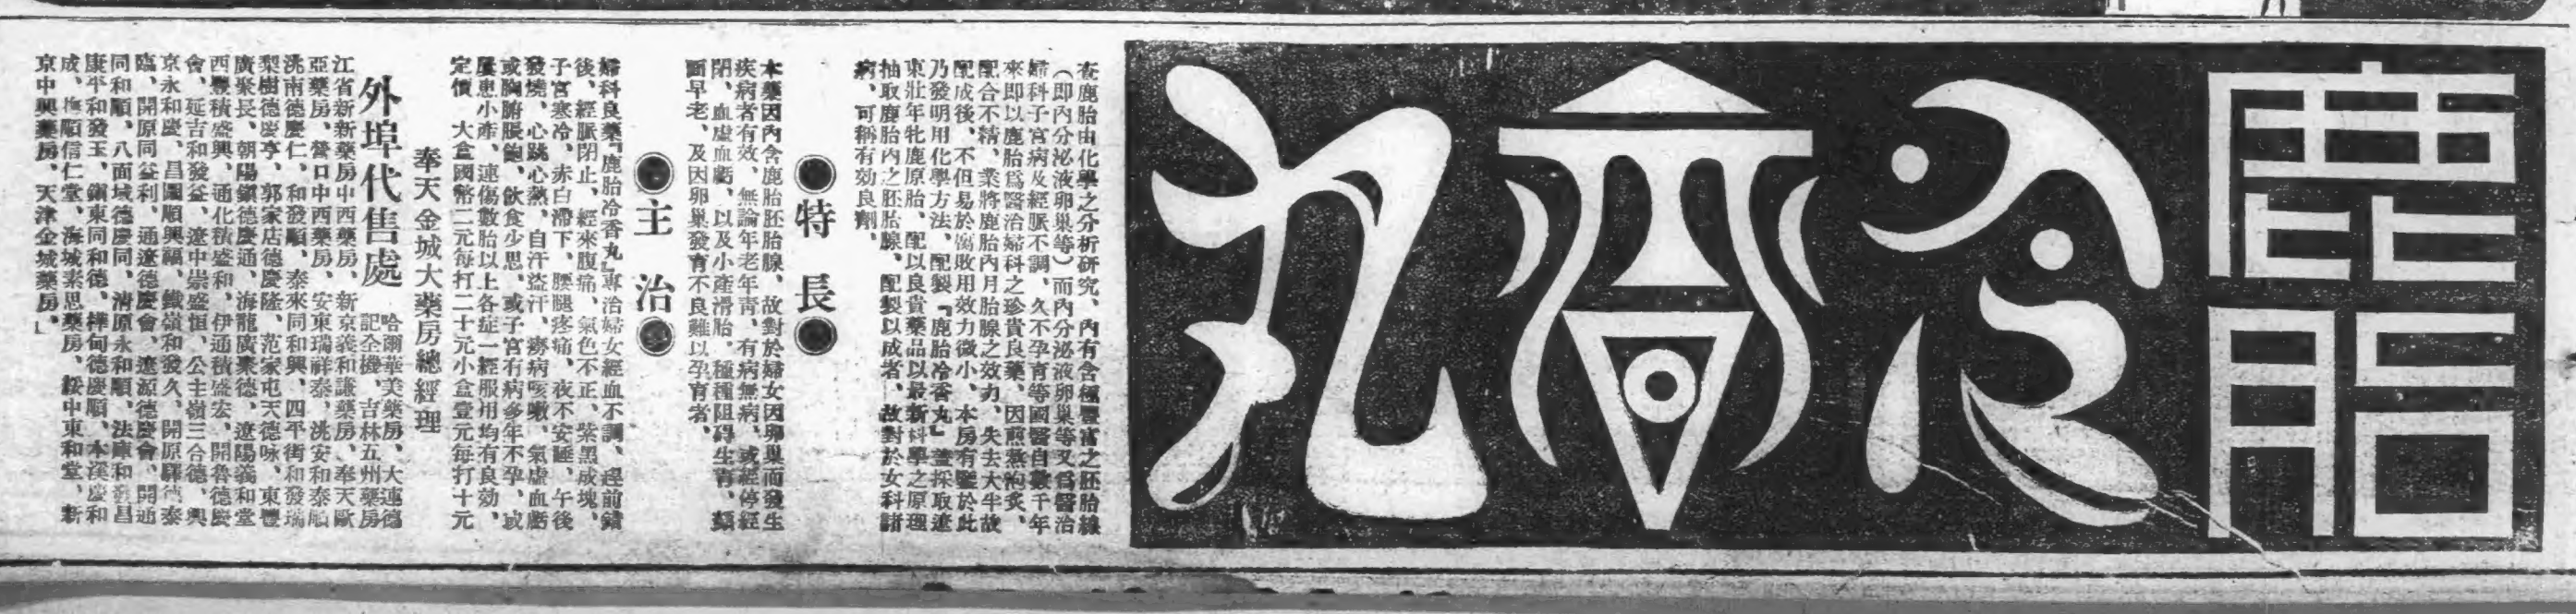 鹿胎冷香丸
查鹿胎由化學之分析研究、內有含極豐富之胚胎線
（即內分泌液卵巢等）而內分泌液卵巢等又爲醫治
婦科子宮病及經脈不調、久不孕育等國醫自數千年
來即以鹿胎爲醫治婦科之珍貴良藥、因煎熬泡炙、
配合不精、業將鹿胎內月胎腺之效力、失去大半故
配成後、不但易於腐敗用效力微小、本房有鑒於此
乃發明用化學方法、配製『鹿胎冷香丸』蓋採取遼
東壯年牝鹿原胎、配以良貴藥品以最新科學之原理
抽取鹿胎內之胚胎腺、配製以成者、故對於女科諸
病、可稱有効良劑、
●特長●
本藥因內含鹿胎胚胎腺、故對於婦女因卵巢而發生
疾病者有效、無論年老年青、有病無病、或經停經
閉、血虛血虧、以及小產滑胎、種種阻碍生育、顏
面早老、及因卵巢發育不良難以孕育者、
●主治●
婦科良藥『鹿胎冷香丸』專治婦女經血不調、趕前錯
後、經脈閉止、經來腹痛、氣色不正、紫黑成塊、
子宮寒冷、赤白滯下、腰腿疼痛、夜不安睡、午後
發燒、心跳心熱、自汗盜汗、癆病咳嗽、氣虛血虧
或胸腑脹飽、飲食少思、或子宮有病多年不孕、或
屢患小產、連傷數胎以上各症一經服用均有良効、
定價　大盒國幣二元每打二十元小盒壹元每打十元
奉天金城大藥房總經理
外埠代售處
哈爾華美藥房、大連德
記全機、吉林五州藥房
江省新新藥房中西藥房、新京義和謙藥房、奉天歐
亞藥房、營口中西藥房、安東瑞祥泰、洮安和泰順
洮南德慶仁、和發順、泰來同和興、四平街和發瑞
梨樹德慶亨、郭家店德慶隆、范家屯天德咏、東豐
廣聚長、朝陽鎭德慶通、海龍廣聚德、遼陽義和堂
西豐積盛興、通化積盛和、伊通積盛宏、開魯德慶
會、延吉和發益、遼中崇盛恒、公主嶺三合德、興
京永和慶、昌圖順興福、鐵嶺和發久、開原驛德泰
臨、開原同益利、通遼德慶會、遼源德慶會、開通
同和順、八面城德慶同、清原永和順、法庫和發昌
康平和發玉、鎭東同和德、樺甸德慶順、本溪慶和
成、撫順信仁堂、海城素思藥房、綏中東和堂、新
京中興藥房、天津金城藥房、」